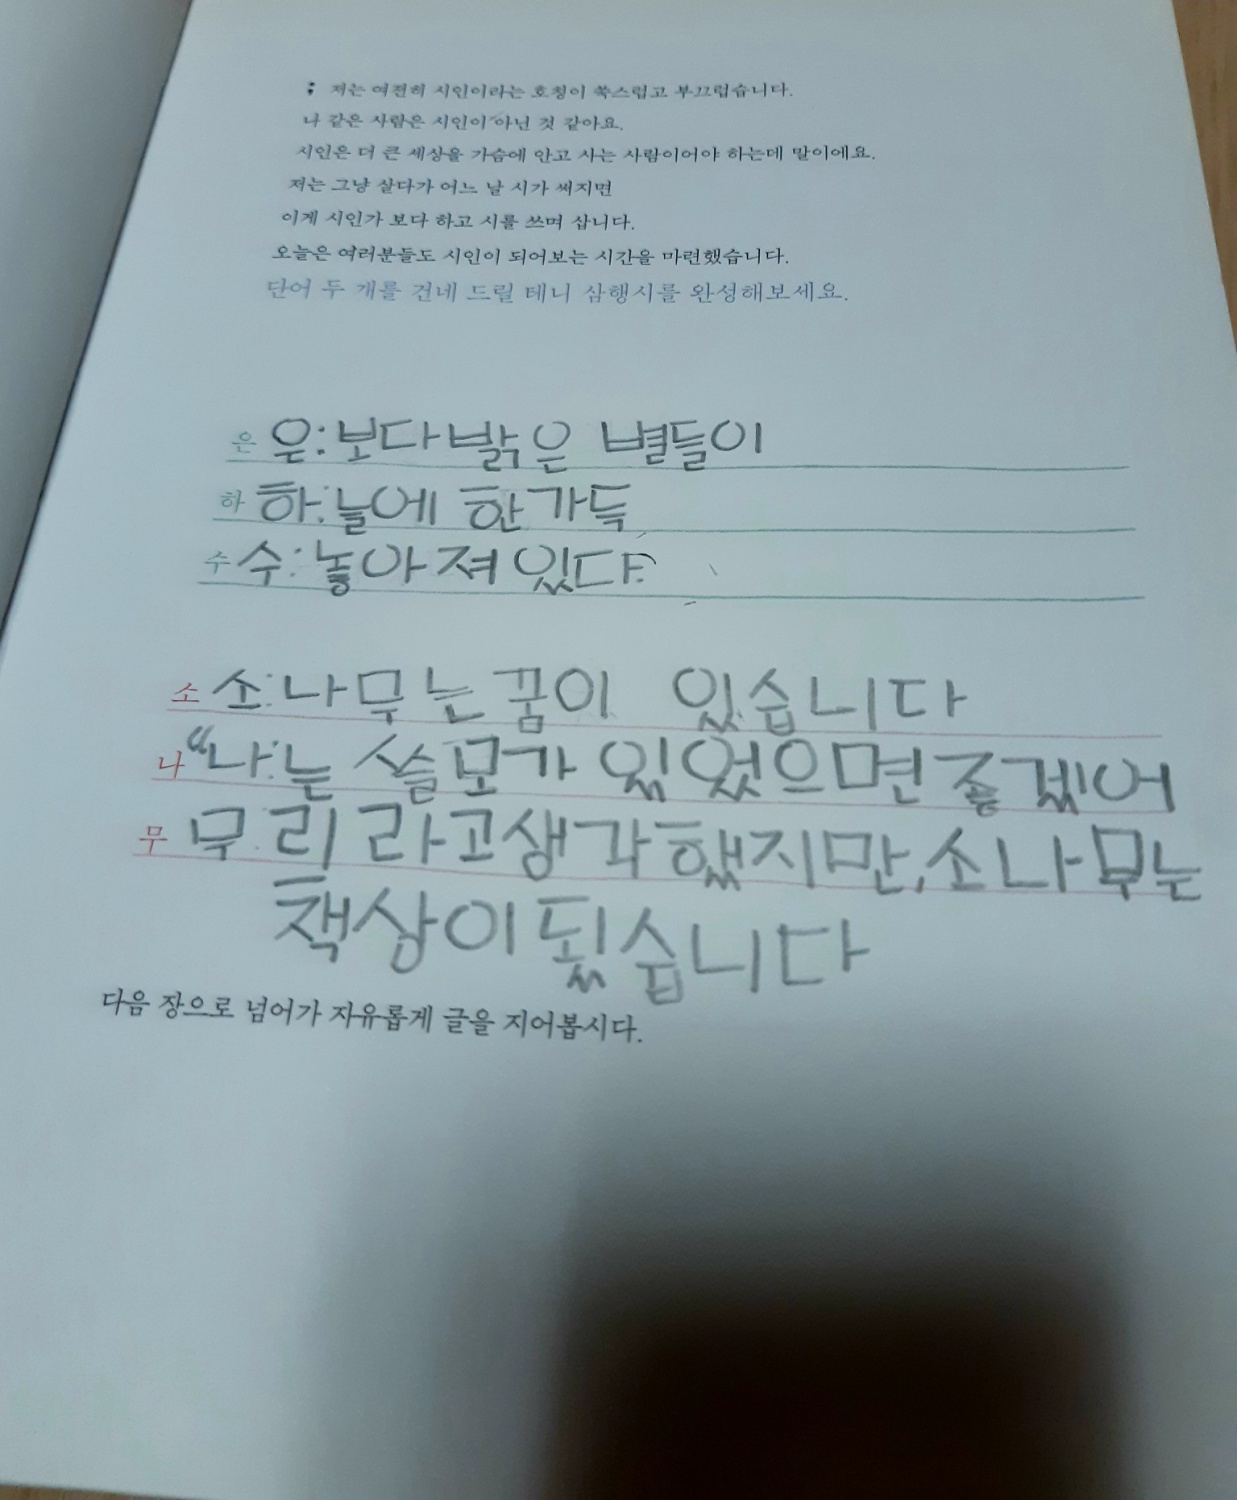 ; 저는 여전히 시인이라는 호칭이 쑥스럽고 부끄럽습니다.
나 같은 사람은 시인이 아닌 것 같아요.
시인은 더 큰 세상을 가슴에 안고 사는 사람이어야 하는데 말이에요.
저는 그냥 살다가 어느 날 시가 써지면
이게 시인가 보다 하고 시를 쓰며 삽니다.
오늘은 여러분들도 시인이 되어보는 시간을 마련했습니다.
단어 두 개를 건네 드릴 테니 삼행시를 완성해보세요.
은 은:보다 밝은 별들이
하 하:늘에 한가득
수 수:놓아져 있다.
소 소:나무는 꿈이 있습니다
나 “나:는 쓸모가 있었으면 좋겠어
무 무:리라고 생각했지만, 소나무는
책상이 됬습니다
다음 장으로 넘어가 자유롭게 글을 지어봅시다.